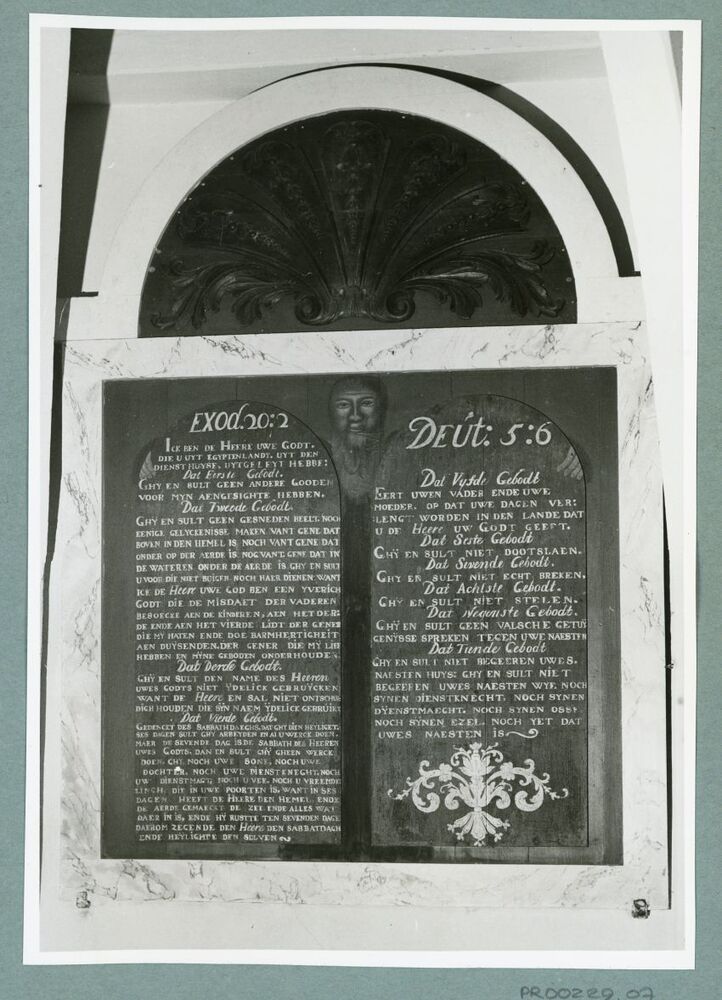 EXOD.20:2
ICK BEN DE HEERE UWE GODT.
DIE U UYT EGYPTENLANDT, UYT DEN
DIENSTHUYSE, UYTGELEYT HEBBE:
Dat Eerste Gebodt.
GHY EN SULT GEEN ANDERE GOODEN
VOOR MYN AENGESIGHTE HEBBEN.
Dat Tweede Gebodt.
GHY EN SULT GEEN GESNEDEN BEELT, NOCH
EENIGE GELYCKENISSE MAKEN VANT GENE DAT
BOVEN IN DEN HEMEL IS, NOCH VANT GENE DAT
ONDER OP DER AERDE IS NOG VANT GENE DAT IN
DE WATEREN ONDER DE AERDE IS GHY EN SULT
U VOOR DIE NIET BUIGEN NOCH HAER DIENEN WANT
ICK DE Heere UWE GOD BEN EEN YVERICH
GODT DIE DE MISDAET DER VADEREN
BESOECKE AEN DE KINDEREN, AEN HET DER:
DE ENDE AEN HET VIERDE LIDT DER GENER
DIE MY HATEN ENDE DOE BARMHERTIGHEIT
AEN DUYSENDEN. DER GENER DIE MY LIEF
HEBBEN EN MYNE GEBODEN ONDERHOUDEN.
Dat Derde Gebodt.
GHY EN SULT DEN NAME DES Heeren
UWES GODTS NIET YDELICK GEBRUYCKEN
WANT DE Heere EN SAL NIET ONTSCHUL
DIGH HOUDEN DIE SYN NAEM YDELICK GEBRUIKT
Dat Vierde Gebodt.
GEDENCKT DES SABBATHDAEGHS, DAT GHY DIEN HEYLIGET.
SES DAGEN SULT GHY ARBEYDEN EN AL U WERCK DOEN.
MAER DE SEVENDE DAG IS DE SABBATH DES HEEREN
UWES GODTS, DAN EN SULT GHY GHEEN WERCK
DOEN, GHY, NOCH UWE SONE, NOCH UWE
DOCHTER, NOCH UWE DIENSTKNEGHT, NOCH
UW DIENSTMAGT, NOCH U VEE, NOCH U VREEMDE
LINCH, DIE IN UWE POORTEN IS, WANT IN SES
DAGEN HEEFT DE HEERE DEN HEMEL ENDE
DE AERDE GEMAECKT DE ZEE ENDE ALLES WAT
DAER IN IS, ENDE HY RUSTTE TEN SEVENDEN DAGE
DAEROM ZEGENDE DEN Heere DEN SABBATDACH
ENDE HEYLIGHTE DEN SELVEN
DEÚT: 5:6
Dat Vyfde Gebodt
EERT UWEN VADER ENDE UWE
MOEDER. OP DAT UWE DAGEN VER:
LENGT WORDEN IN DEN LANDE DAT
U DE Heere UW GODT GEEFT.
Dat Seste Gebodt
GHY EN SULT NIET DOOTSLAEN.
Dat Sevende Gebodt.
GHY EN SULT NIET ECHT BREKEN.
Dat Achtste Gebodt.
GHY EN SULT NIET STELEN.
Dat Negenste Gebodt.
GHY EN SULT GEEN VALSCHE GETUY
GENYSSE SPREKEN TEGEN UWE NAESTEN
Dat Tiende Gebodt
GHY EN SULT NIET BEGEEREN UWES.
NAESTEN HUYS: GHY EN SULT NIET
BEGEEREN UWES NAESTEN WYF, NOCH
SYNEN DIENSTKNECHT, NOCH SYNEN
DYENSTMAEGHT, NOCH SYNEN OSSE.
NOCH SYNEN EZEL, NOCH YET DAT
UWES NAESTEN IS
PR00229.02